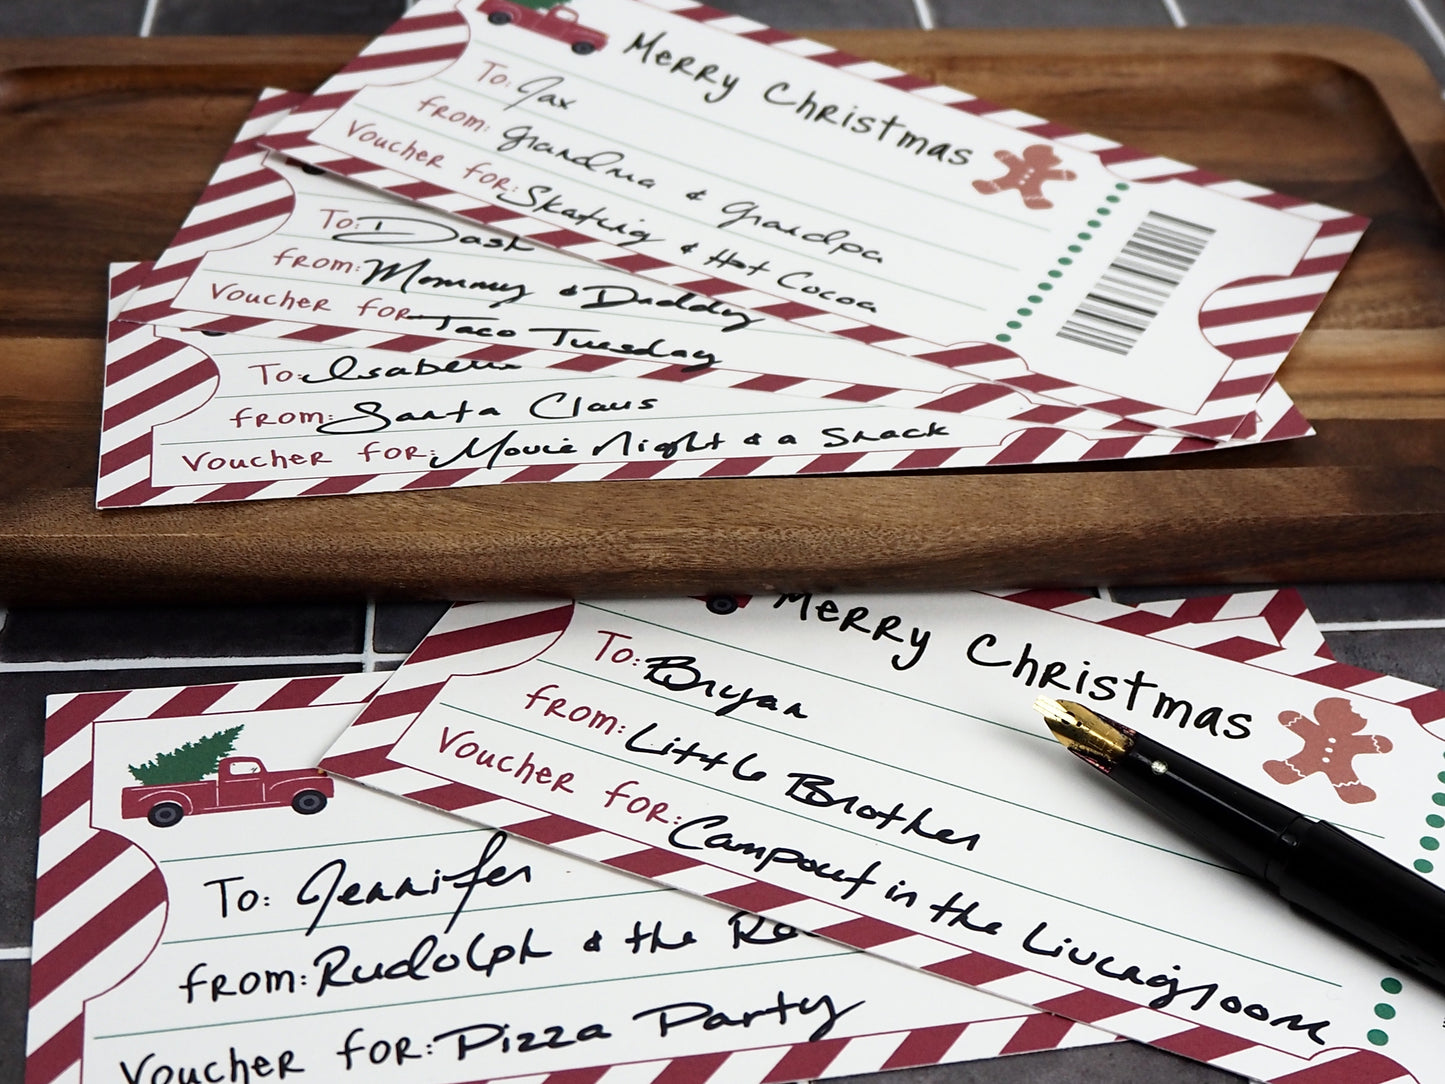 Merry Christmas
To: Jax
From: Grandma & Grandpa
Voucher for: Skating & Hot Cocoa
To: Dash
From: Mommy & Daddy
Voucher for: Taco Tuesday
To: Isabell
From: Santa Claus
Voucher for: Movie Night & a Snack
Merry Christmas
To: Bryan
From: Little Brother
Voucher for: Campout in the Livingroom
To: Jennifer
From: Rudolph & the Re
Voucher for: Pizza Party